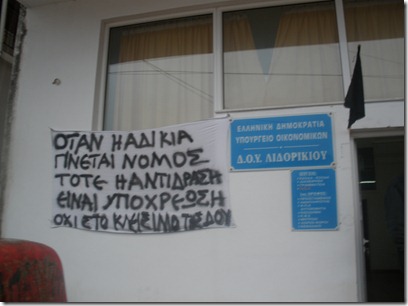 ΟΤΑΝ Η ΑΔΙΚΙΑ
ΓΙΝΕΤΑΙ ΝΟΜΟΣ
ΤΟΤΕ Η ΑΝΤΙΔΡΑΣΗ
ΕΙΝΑΙ ΥΠΟΧΡΕΩΣΗ
ΟΧΙ ΣΤΟ ΚΛΕΙΣΙΜΟ ΤΗΣ ΔΟΥ
ΕΛΛΗΝΙΚΗ ΔΗΜΟΚΡΑΤΙΑ
ΥΠΟΥΡΓΕΙΟ ΟΙΚΟΝΟΜΙΚΩΝ
Δ.Ο.Υ. ΛΙΔΟΡΙΚΙΟΥ